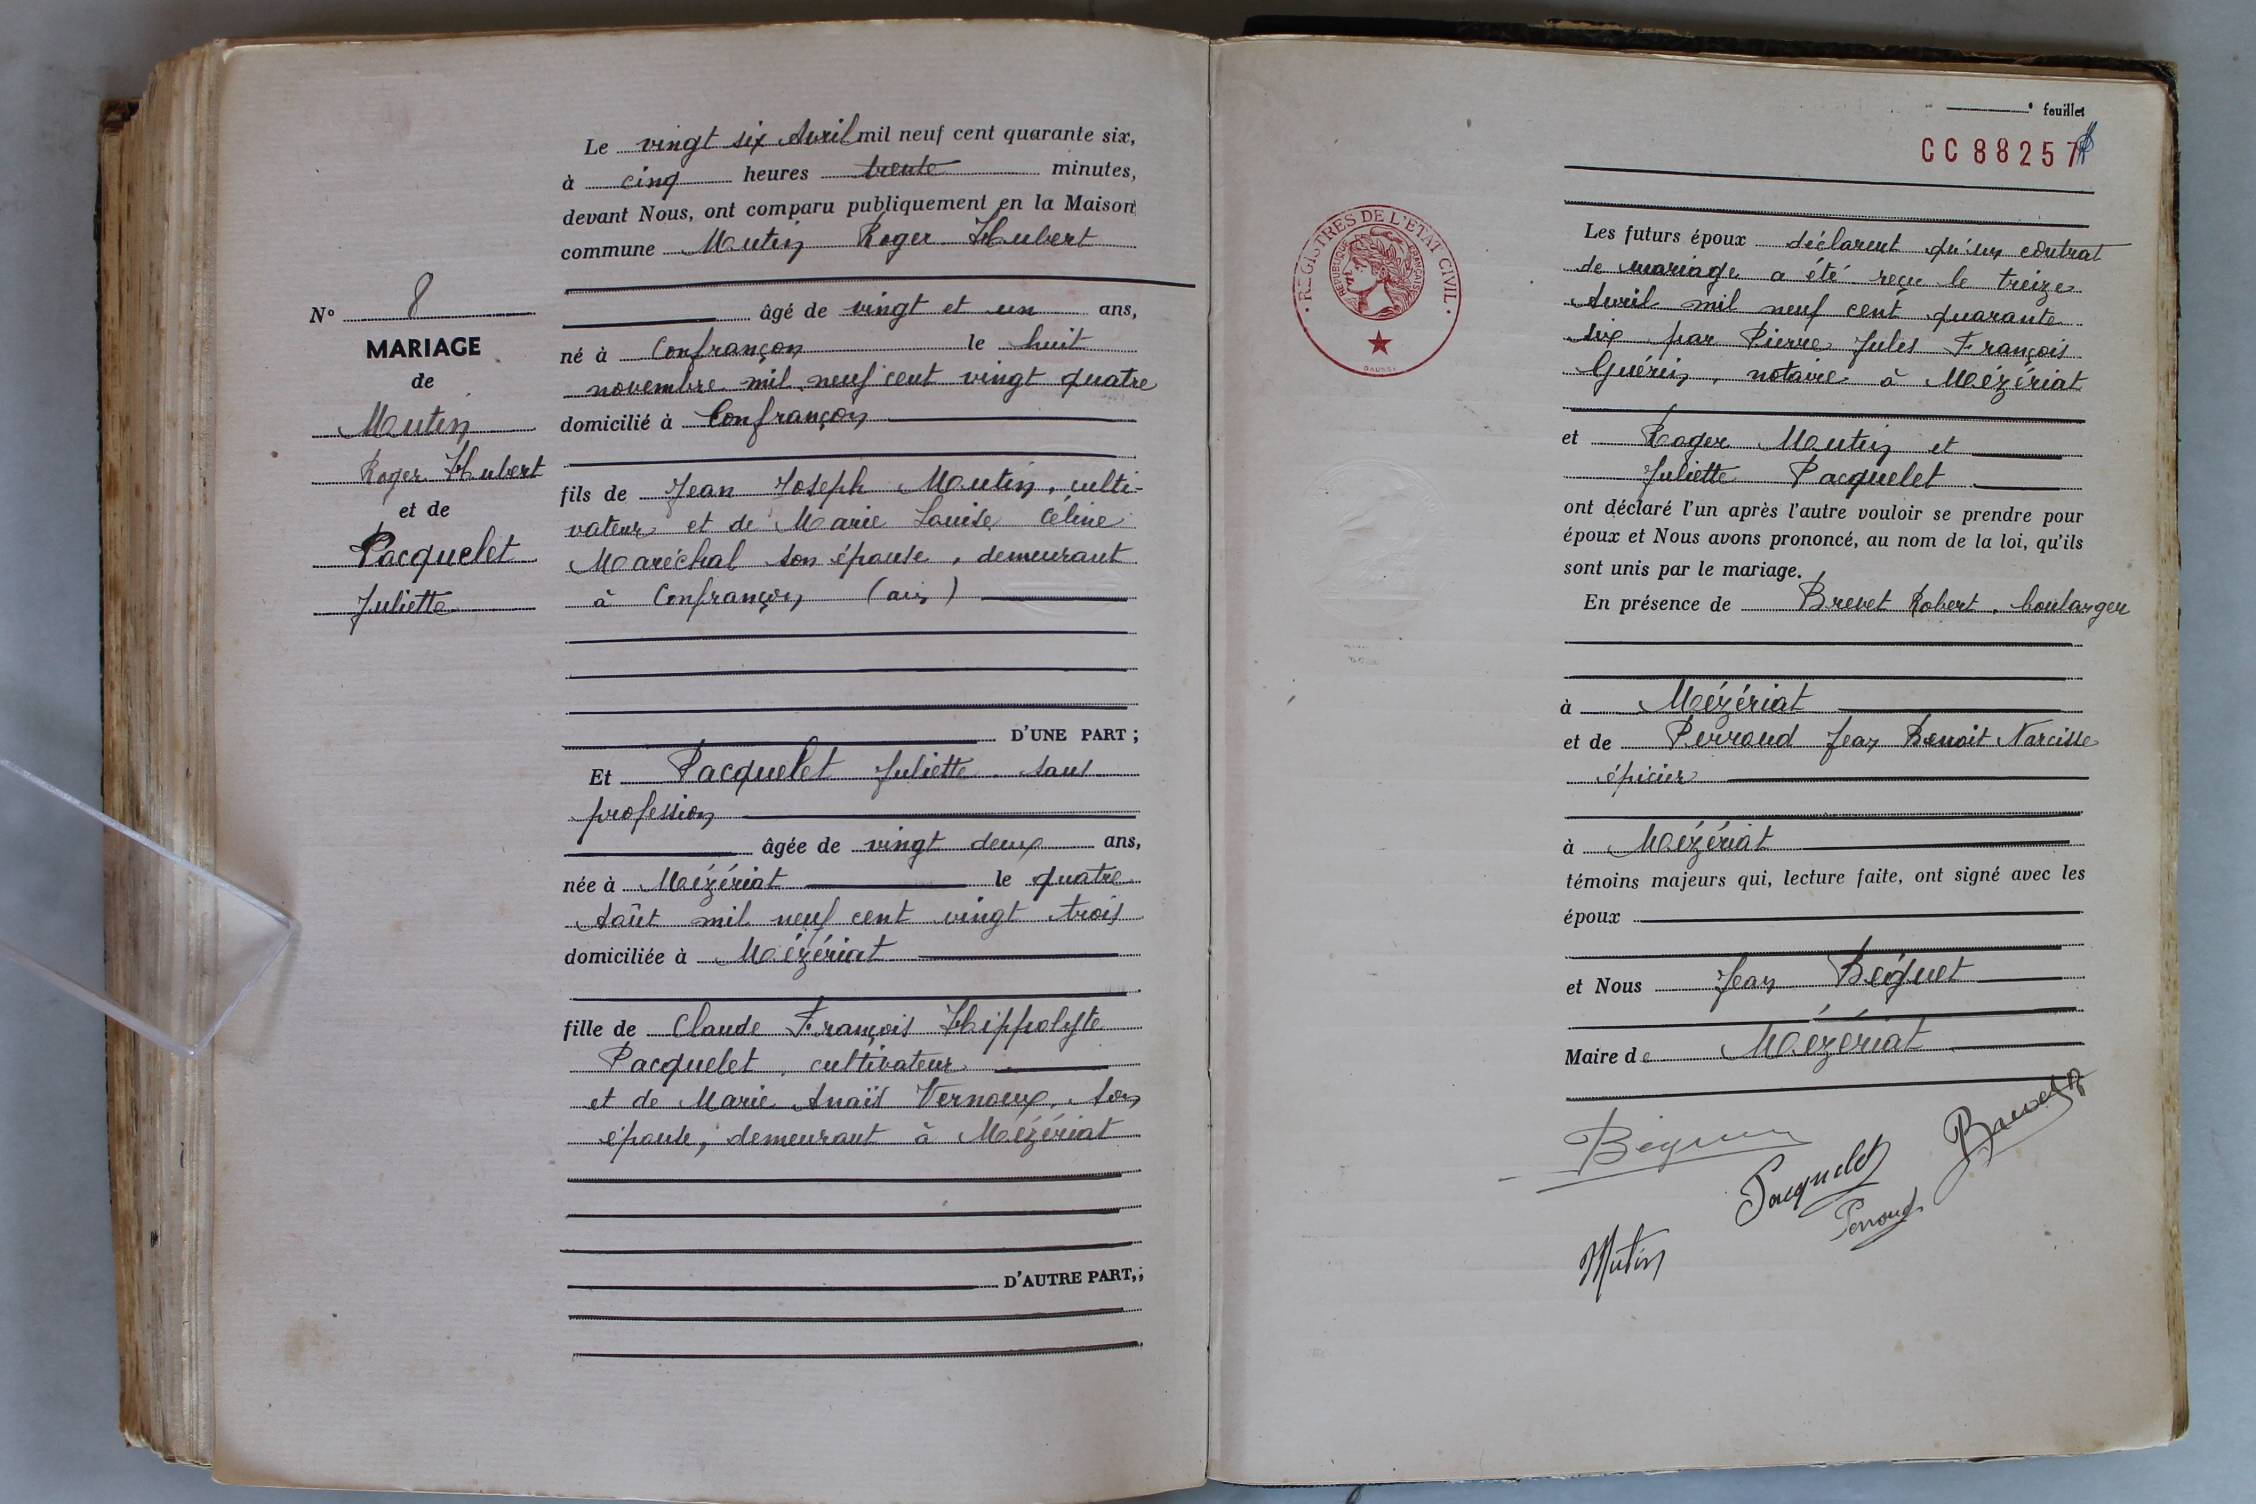 Le vingt six Avril mil neuf cent quarante six,
à cinq heures trente minutes,
devant Nous, ont comparu publiquement en la Maison
commune Mutin Roger Hubert
âgé de vingt et un ans,
né à Confrançon le huit
novembre mil neuf cent vingt quatre
domicilié à Confrançon
fils de Jean Joseph Mutin, culti-
vateur et de Marie Louise Céline
Maréchal son épouse, demeurant
à Confrançon (ain)
D'UNE PART ;
Et Pacquelet Juliette sans
profession
âgée de vingt deux ans,
née à Mézériat le quatre
Août mil neuf cent vingt trois
domiciliée à Mézériat
fille de Claude François Hippolyte
Pacquelet, cultivateur
et de Marie Anaïs Vernoux, son
épouse, demeurant à Mézériat
D'AUTRE PART,;
N° 8
MARIAGE
de
Mutin
Roger Hubert
et de
Pacquelet
Juliette
° feuillet
CC 88257
REGISTRES DE L'ETAT CIVIL
REPUBLIQUE FRANÇAISE
Les futurs époux déclarent qu'un contrat
de mariage a été reçu le treize
Avril mil neuf cent quarante
six par Pierre Jules François
Guérin, notaire à Mézériat
et Roger Mutin et
Juliette Pacquelet
ont déclaré l'un après l'autre vouloir se prendre pour
époux et Nous avons prononcé, au nom de la loi, qu'ils
sont unis par le mariage.
En présence de Brevet Robert, boulanger
à Mézériat
et de Perroud Jean Benoit Narcisse
épicier
à Mézériat
témoins majeurs qui, lecture faite, ont signé avec les
époux
et Nous Jean Béguet
Maire de Mézériat
Pacquelet
Perroud
Mutin